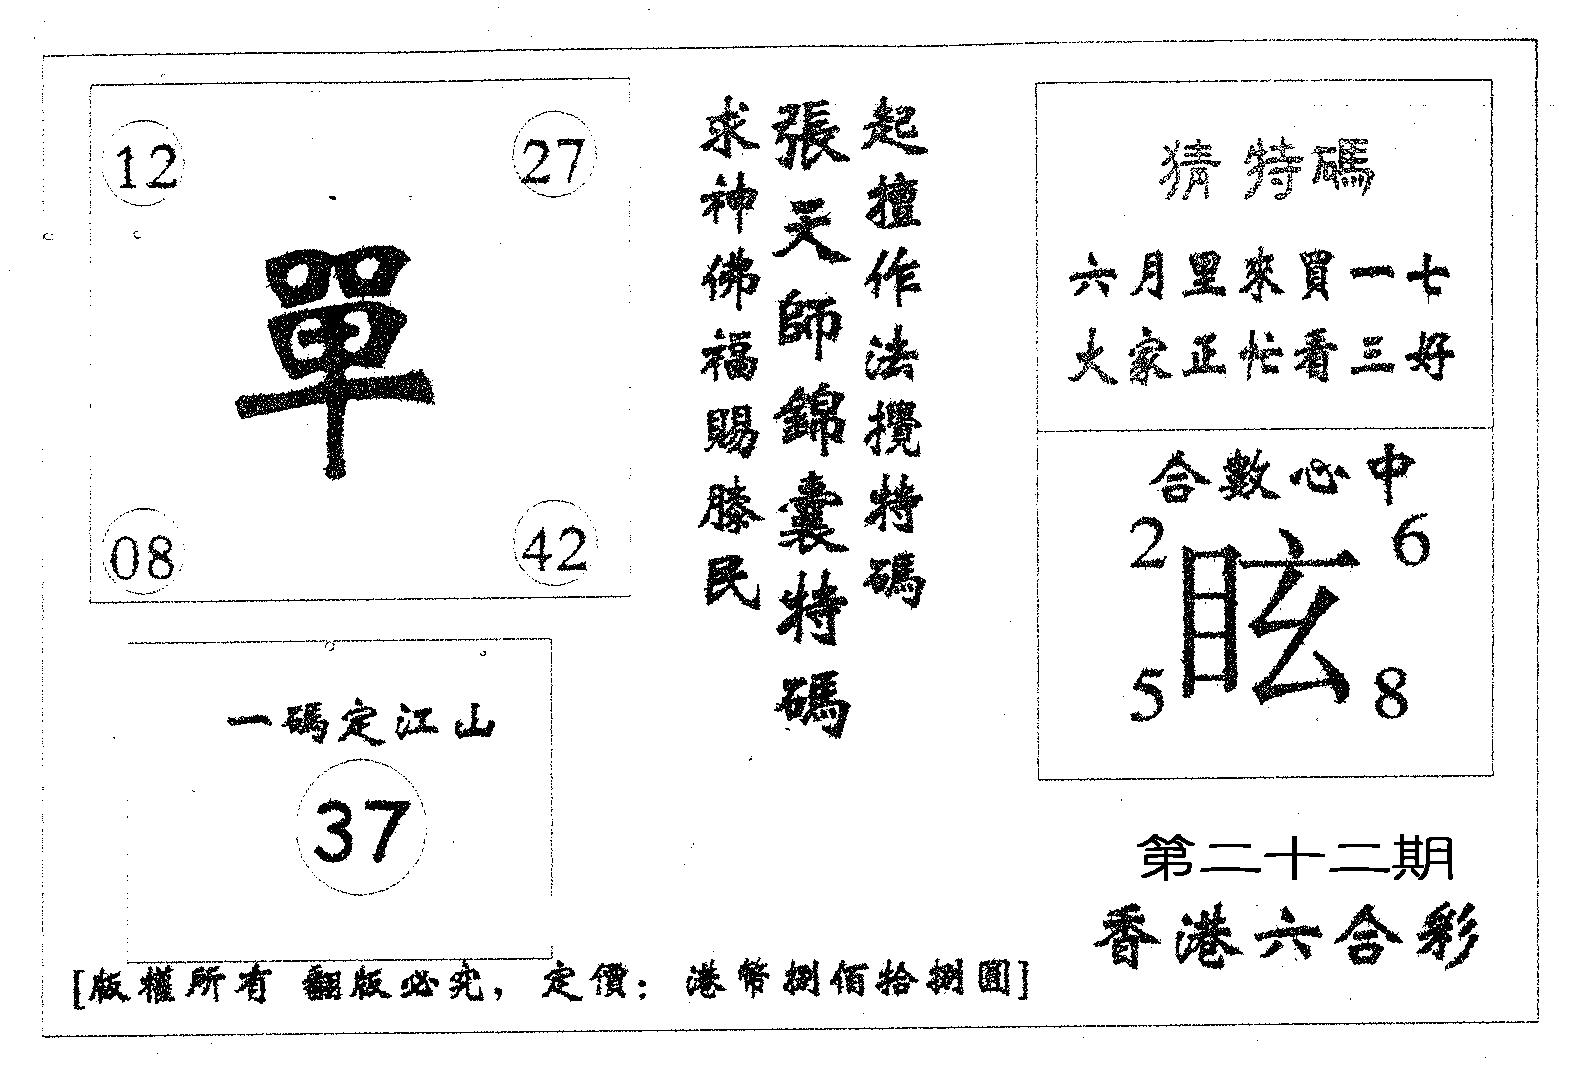 12 27
單
08 42
一碼定江山
37
求神佛福賜滕民
張天師錦囊特碼
起擅作法攪特碼
猜特碼
六月里來買一七
大家正忙看三好
合數心中
2 6
眩
5 8
第二十二期
香港六合彩
[版權所有 翻版必究，定價：港幣捌佰拾捌圓]